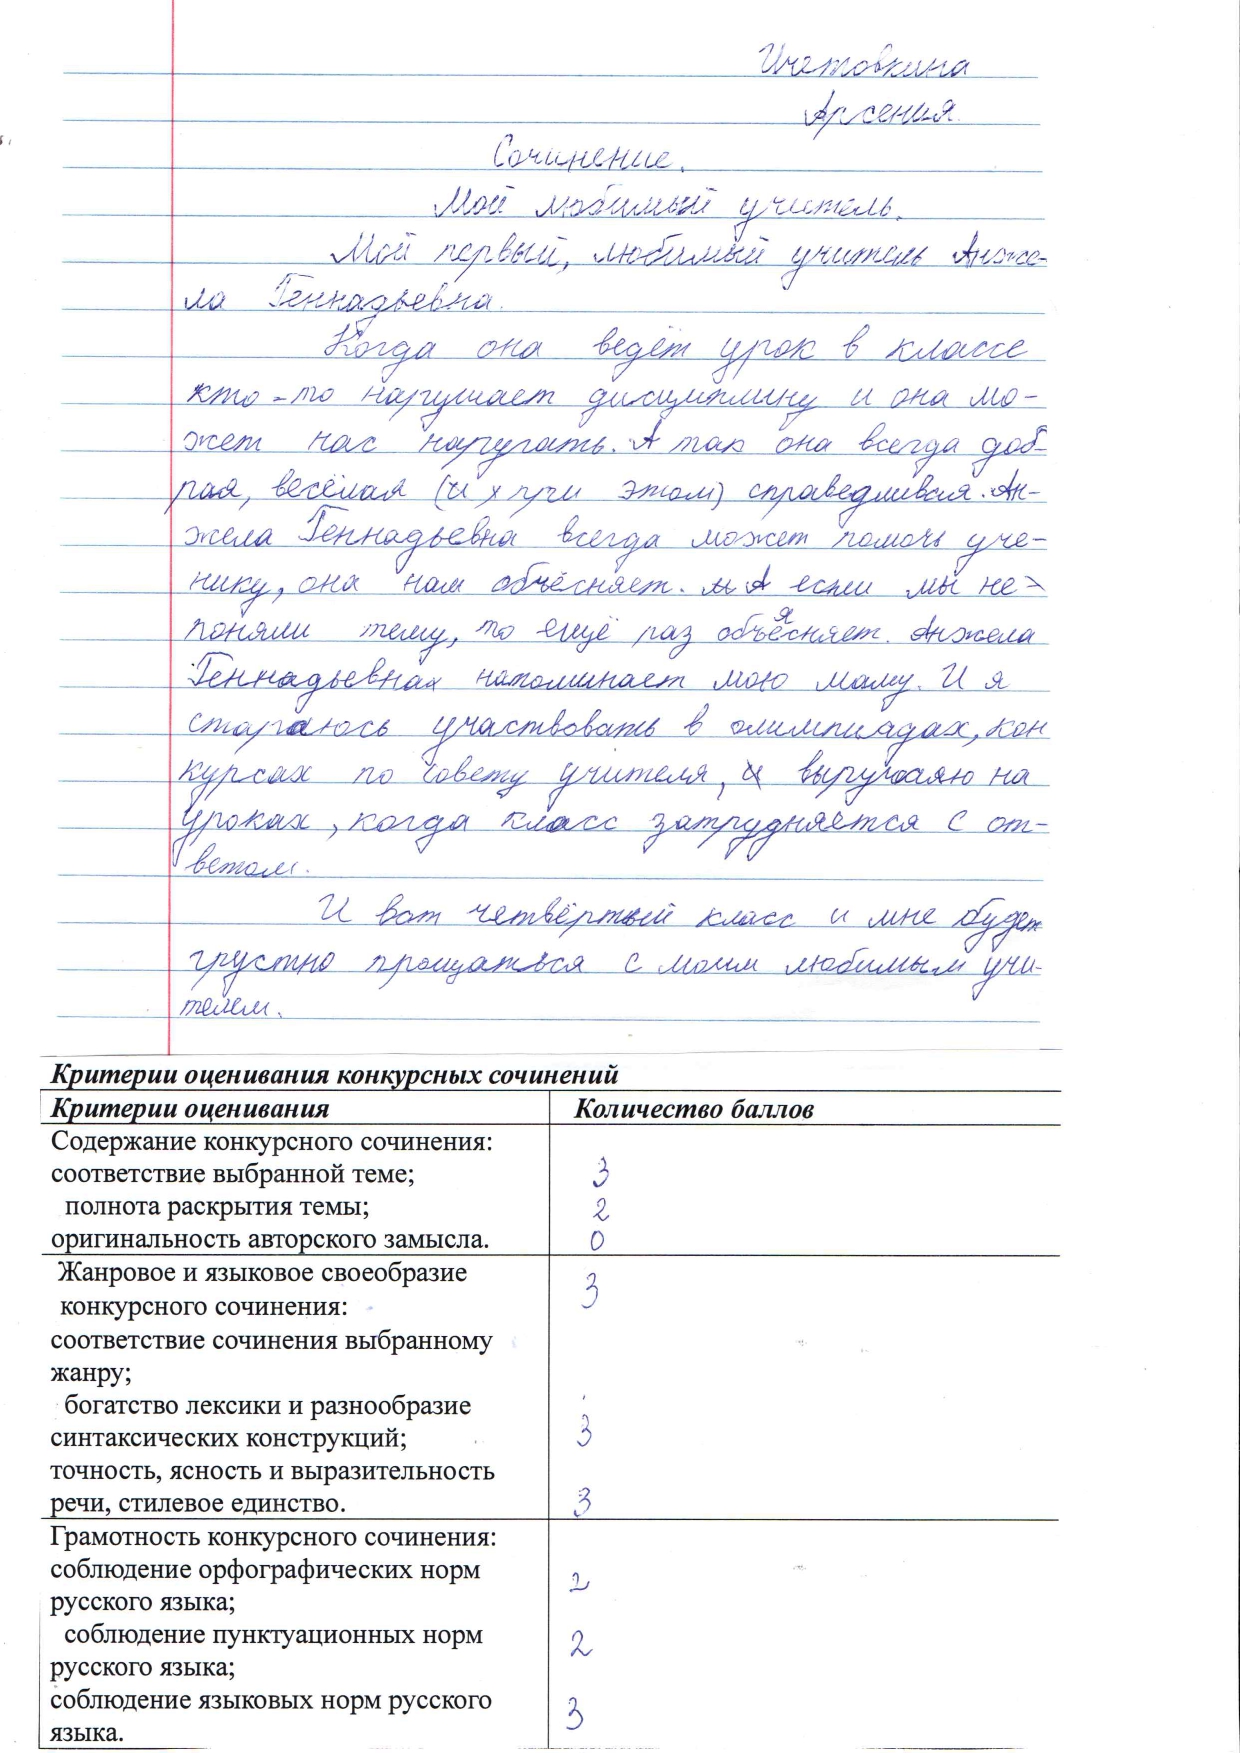 Ичетовкина
Арсения
Сочинение.
Мой любимый учитель.
Мой первый, любимый учитель Анже-
ла Геннадьевна.
Когда она ведёт урок в классе
кто-то нарушает дисциплину и она мо-
жет нас наругать. А так она всегда доб-
рая, весёлая (и при этом) справедливая. Ан-
жела Геннадьевна всегда может помочь уче-
нику, она нам объесняет. А если мы не
поняли тему, то ещё раз объясняет. Анжела
Геннадьевна напоминает мою маму. И я
стараюсь участвовать в олимпиадах, кон
курсах по совету учителя, и выручаю на
уроках, когда класс затрудняется с от-
ветом.
И вот четвёртый класс и мне будет
грустно прощаться с моим любимым учи-
телем.
Критерии оценивания конкурсных сочинений
Критерии оценивания Количество баллов
Содержание конкурсного сочинения:
соответствие выбранной теме; 3
полнота раскрытия темы; 2
оригинальность авторского замысла. 0
Жанровое и языковое своеобразие 3
конкурсного сочинения:
соответствие сочинения выбранному
жанру;
богатство лексики и разнообразие
синтаксических конструкций; 3
точность, ясность и выразительность
речи, стилевое единство. 3
Грамотность конкурсного сочинения:
соблюдение орфографических норм 2
русского языка;
соблюдение пунктуационных норм 2
русского языка;
соблюдение языковых норм русского 3
языка.